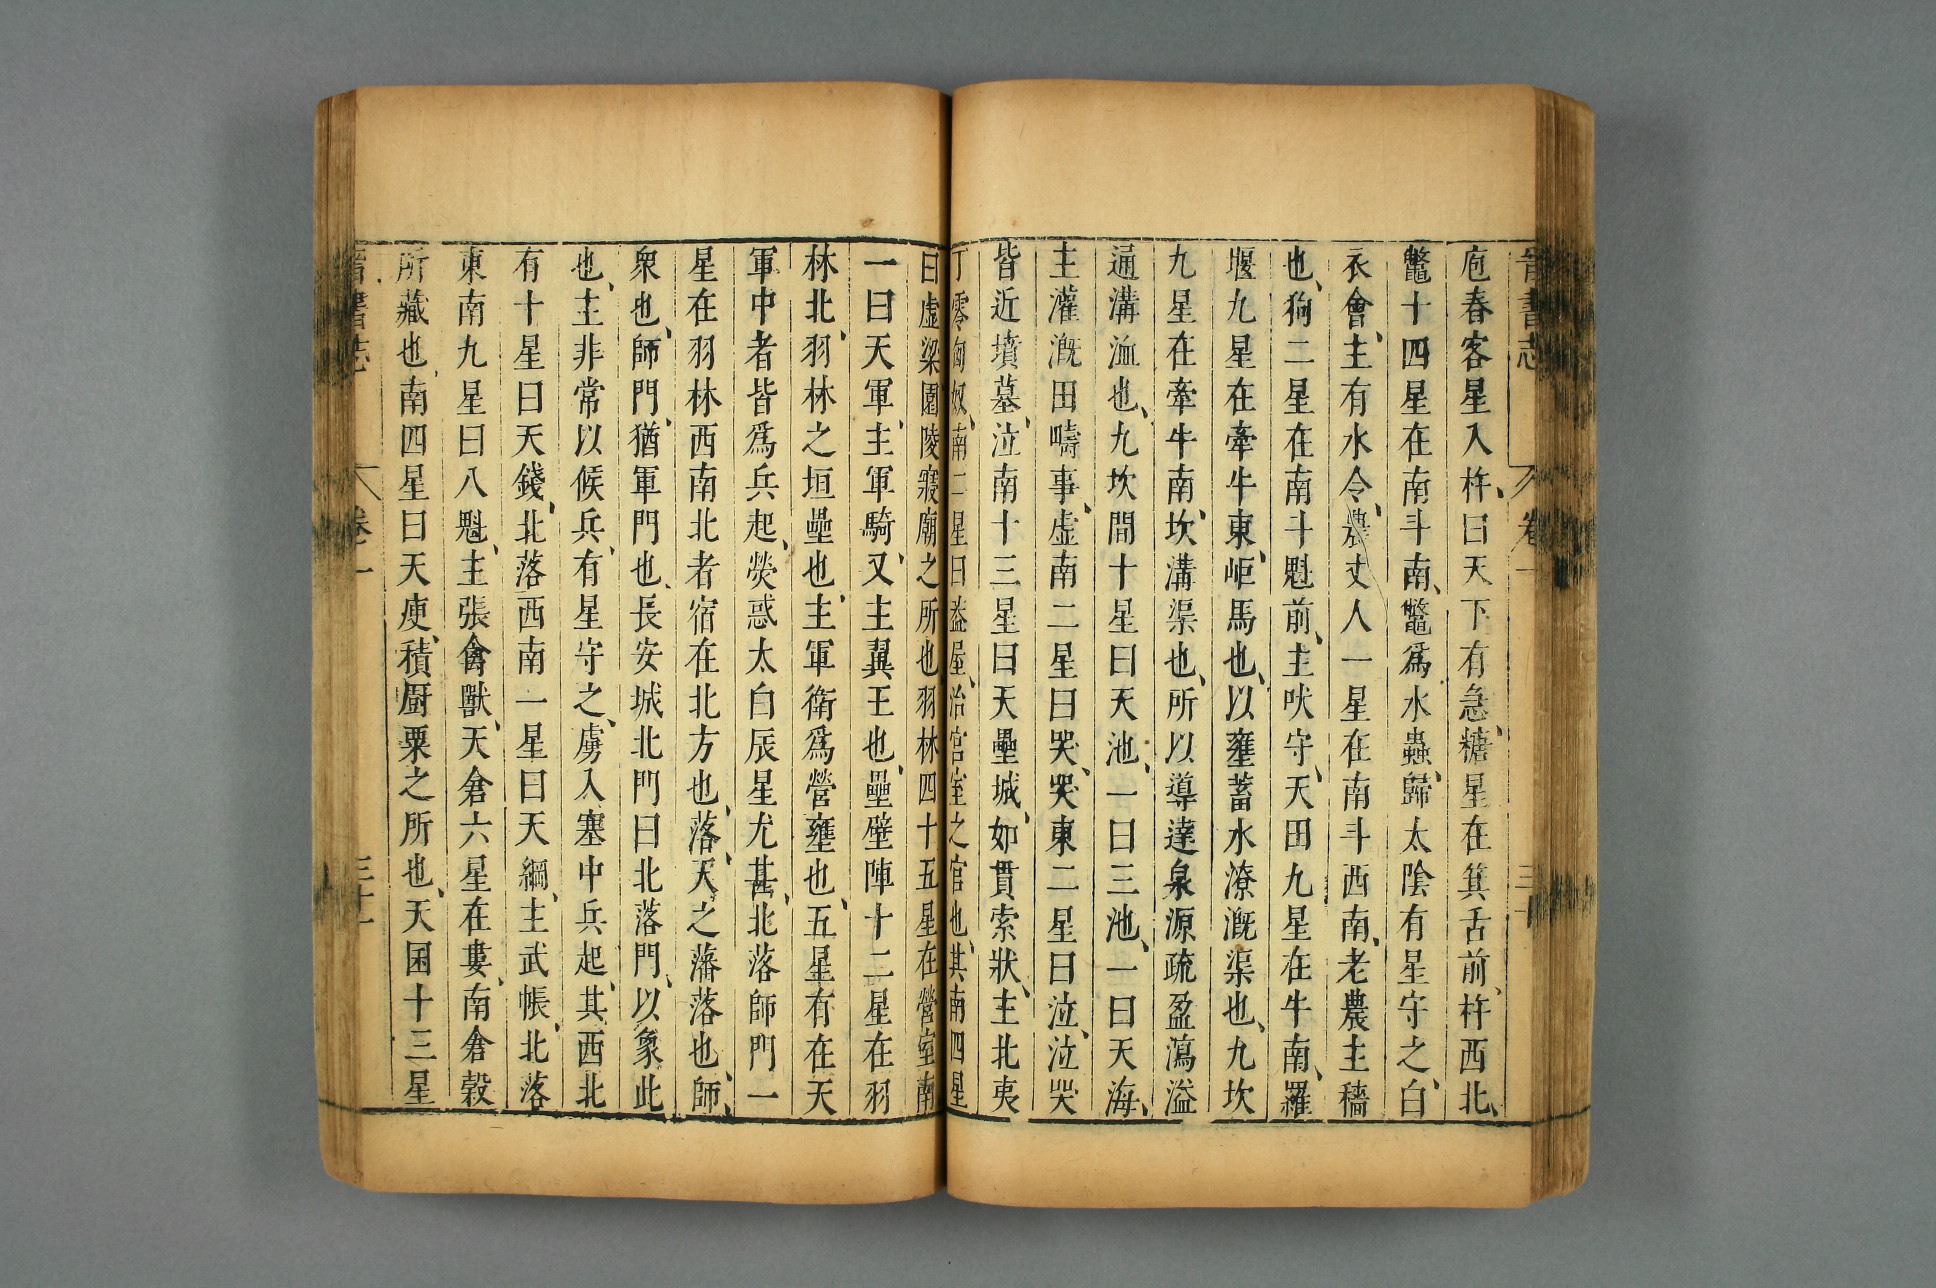 晉書志 卷一 三十
庖舂客星入杵、曰天下有急、糠星在箕舌前、杵西北、
鼈十四星在南斗南、鼈爲水蟲、歸太陰有星守之、白
衣會、主有水令、農丈人一星在南斗西南、老農主穡
也、狗二星在南斗魁前、主吠守、天田九星在牛南、羅
堰九星在牽牛東、岠馬也、以壅蓄水潦漑渠也、九坎
九星在牽牛南、坎溝渠也、所以導達泉源疏盈瀉溢
通溝洫也、九坎間十星曰天池、一曰三池、一曰天海、
主灌漑田疇事、虛南二星曰哭、哭東二星曰泣、泣哭
皆近墳墓、泣南十三星曰天壘城、如貫索狀、主北夷
丁零匈奴、南二星曰蓋屋、治宮室之官也、其南四星
曰虛梁園陵寢廟之所也羽林四十五星在營室南
一曰天軍、主軍騎、又主翼王也、壘壁陣十二星在羽
林北、羽林之垣壘也、主軍衛爲營壅也、五星有在天
軍中者皆爲兵起、熒惑太白辰星尤甚、北落師門一
星在羽林西南北者宿在北方也、落、天之藩落也、師、
衆也、師門、猶軍門也、長安城北門曰北落門、以象此
也、主非常以候兵、有星守之、虜入塞中兵起、其西北
有十星曰天錢、北落西南一星曰天綱、主武帳、北落
東南九星曰八魁、主張禽獸、天倉六星在婁、南倉穀
所藏也、南四星曰天庾、積厨粟之所也、天囷十三星
晉書志 卷一 三十一